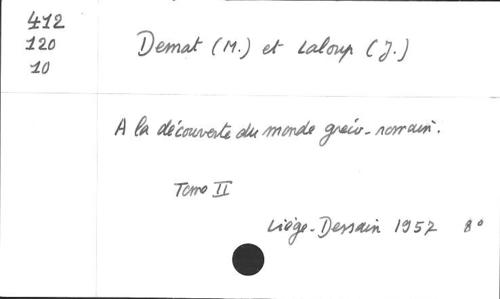 412
120
10
Demat (M.) et Laloup (J.)
A la découverte du monde gréco-romain.
Tome II
Liège-Dessain 1957 8°